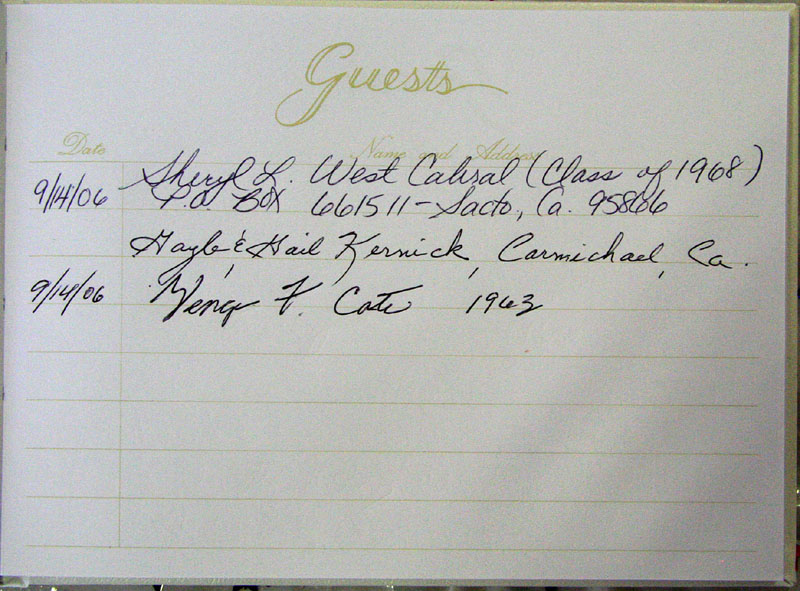 Guests
Date Name and Address
Sheryl L. West Cabral (Class of 1968)
9/14/06 P.O. Box 661511-Sacto, Ca. 95866
Gayle & Gail Kernick, Carmichael, Ca.
9/14/06 F. 1963